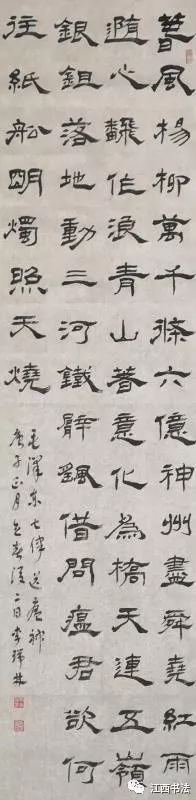 萅風楊柳萬千條六億神州盡舜堯紅雨
隨心飜作浪青山著意化為橋天連五嶺
銀鉏落地動三河鐵臂颻借問瘟君欲何
往紙舩朙燭照天燒
毛澤東七律送瘟神
庚子正月立春後二日李瑞林
江西书法